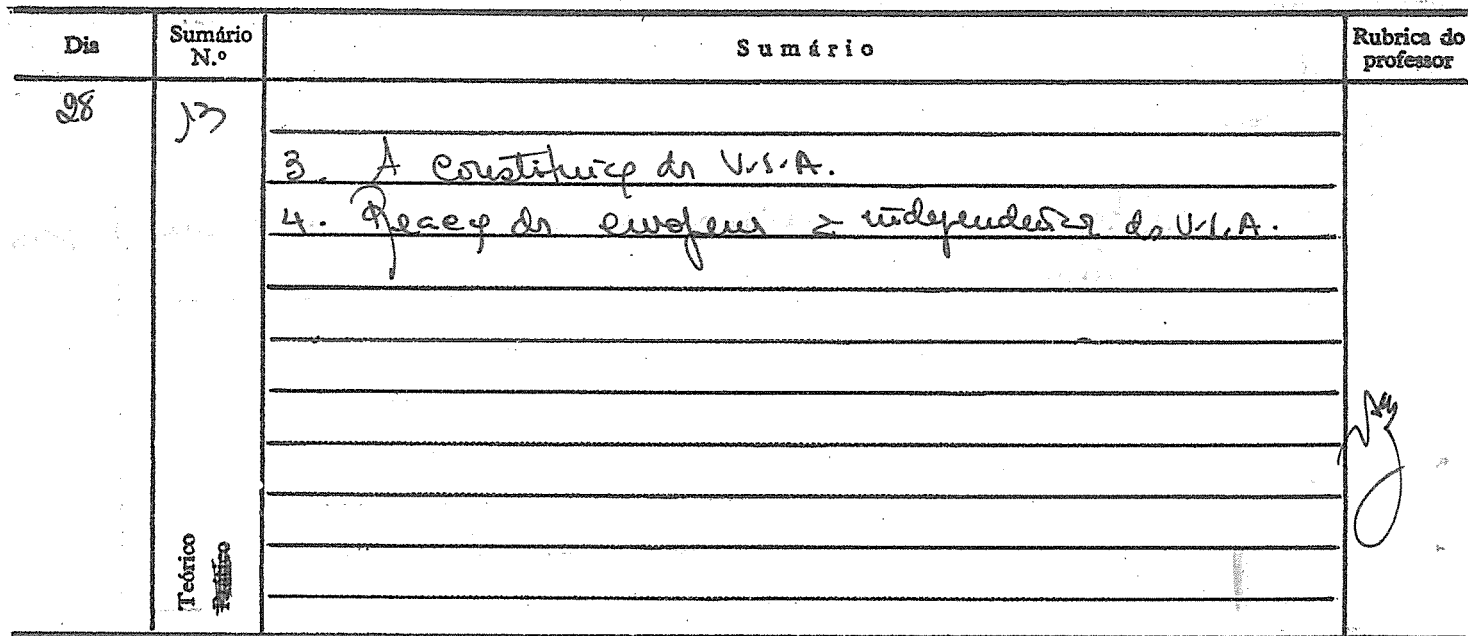 Dia
Sumário N.º
Sumário
Rubrica do professor
28
13
3. A Constituição dos U.S.A.
4. Reacção dos europeus à independência dos U.S.A.
Teórico
Prático